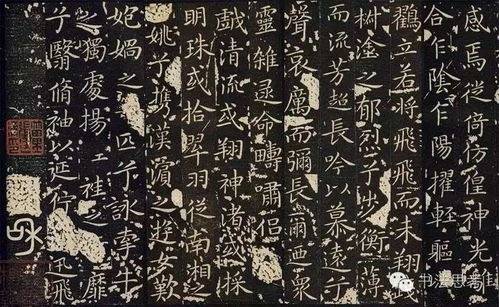 感焉徙倚傍偟神光
合乍陰乍陽擢輕軀
鶴立若將飛飛而未翔
椒塗之郁烈步衡薄
而流芳超長吟以慕遠兮
聲哀厲而彌長爾迺眾
靈雜遝命疇嘯侶
戲清流或翔神渚或採
明珠或拾翠羽從南湘之
姚兮攜漢濱之遊女歎
妃媧之匹兮詠牽牛
之獨處揚袿之靡
兮翳脩袖以延佇迅飛
书法思考